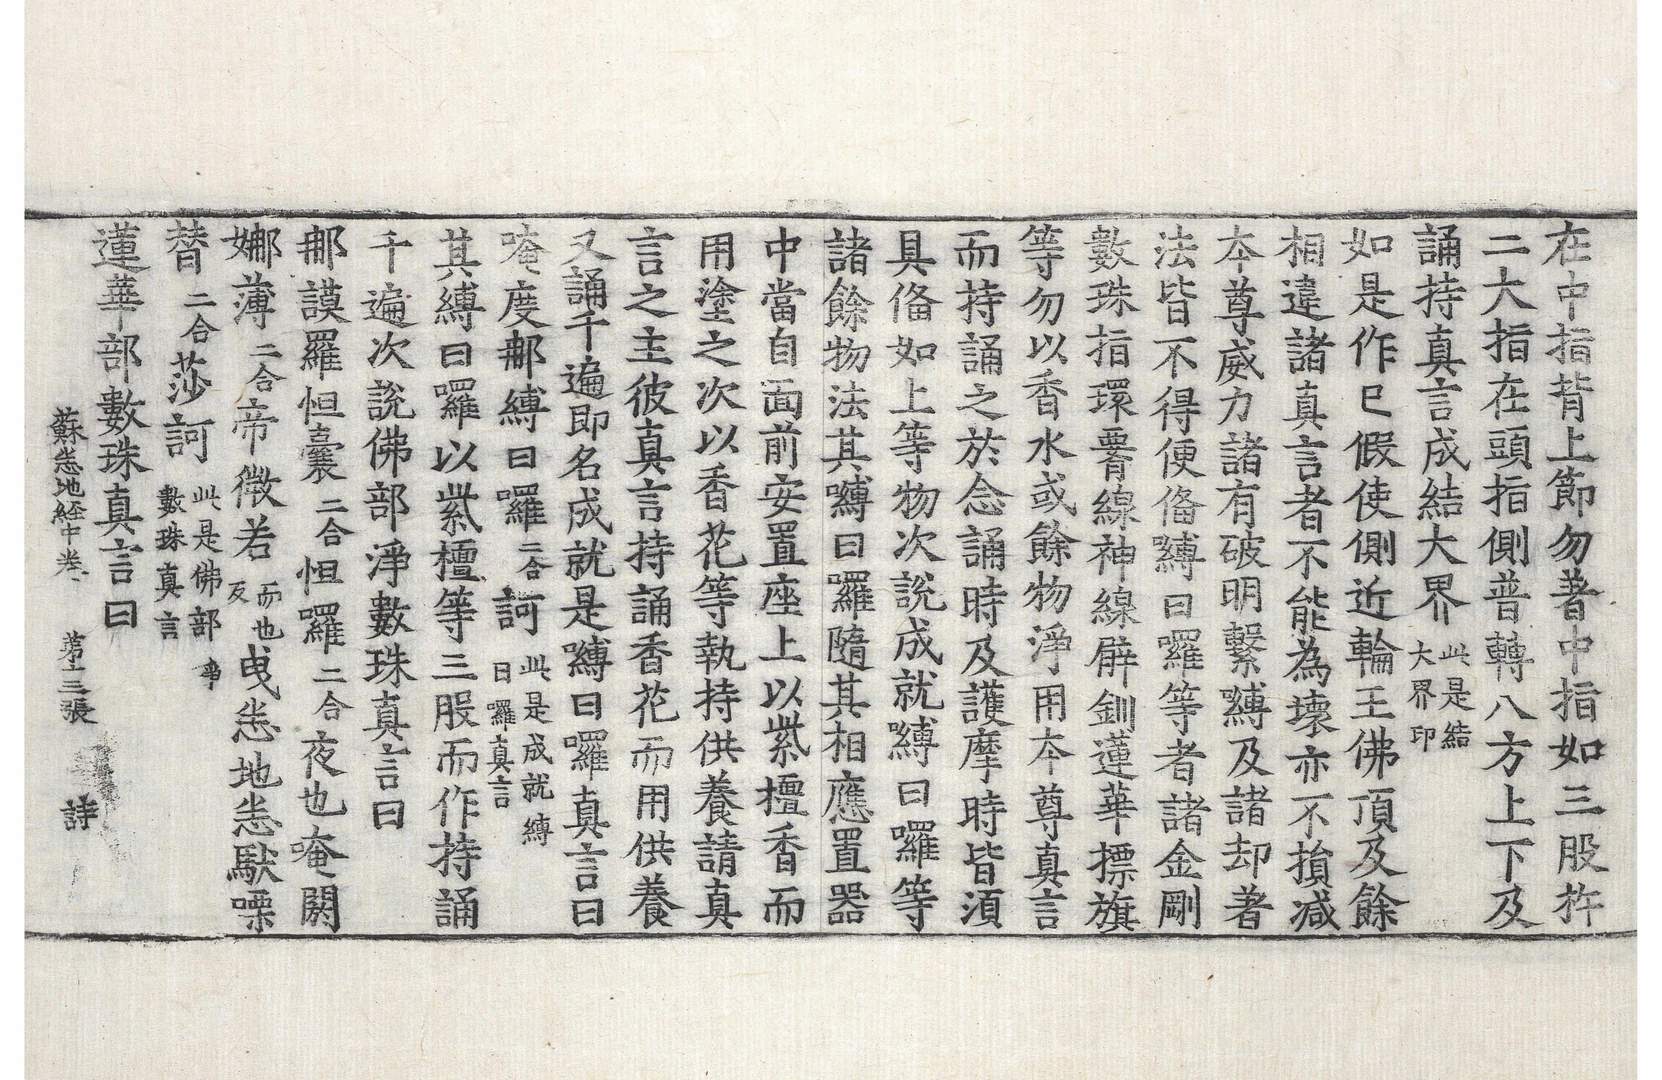 在中指背上節勿著中指如三股杵
二大指在頭指側普轉八方上下及
誦持真言成結大界此是結大界印
如是作已假使側近輪王佛頂及餘
相違諸真言者不能為壞亦不損減
本尊威力諸有破明繫縛及諸却著
法皆不得便俻縛曰囉等者諸金剛
數珠指環𦝫線神線臂釧蓮華摽旗
等勿以香水或餘物淨用本尊真言
而持誦之於念誦時及護摩時皆湏
具俻如上等物次說成就縛曰囉等
諸餘物法其嚩曰囉隨其相應置器
中當自面前安置座上以紫檀香而
用塗之次以香花等執持供養請真
言之主彼真言持誦香花而用供養
又誦千遍即名成就是縛曰囉真言曰
唵度郍縛曰囉二合訶此是成就縛曰囉真言
其縛曰囉以紫檀等三股而作持誦
千遍次說佛部淨數珠真言曰
郍謨羅怛囊二合怛囉二合夜也唵閼
娜薄二合帝微若而也反曳悉地悉馱㗚
替二合莎訶此是佛部數珠真言
蓮華部數珠真言曰
蘇悉地經中卷 第十三張 詩